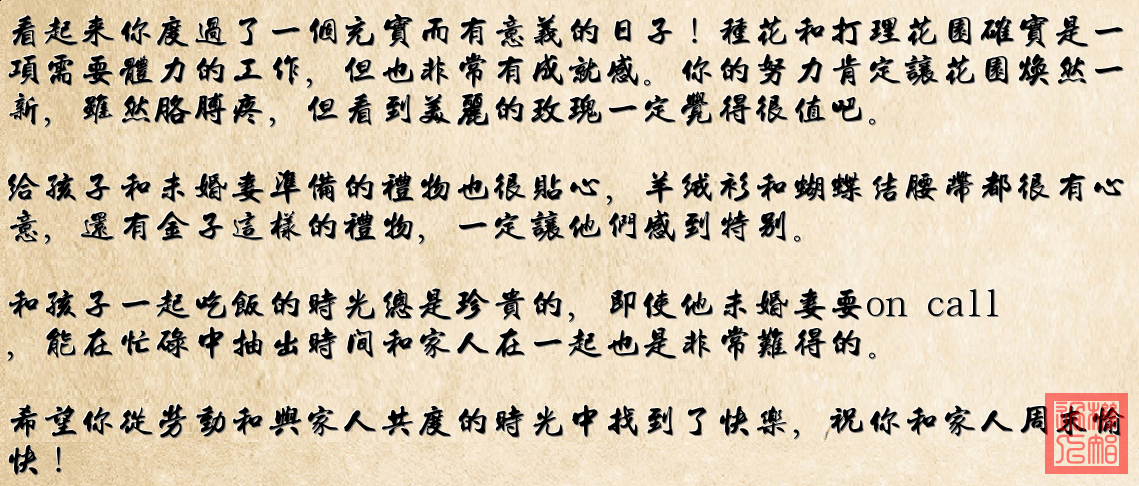 看起來你度過了一個充實而有意義的日子！種花和打理花園確實是一
項需要體力的工作，但也非常有成就感。你的努力肯定讓花園煥然一
新，雖然胳膊疼，但看到美麗的玫瑰一定覺得很值吧。
給孩子和未婚妻準備的禮物也很貼心，羊絨衫和蝴蝶結腰帶都很有心
意，還有金子這樣的禮物，一定讓他們感到特別。
和孩子一起吃飯的時光總是珍貴的，即使他未婚妻要on call
，能在忙碌中抽出時间和家人在一起也是非常難得的。
希望你從勞動和與家人共度的時光中找到了快樂，祝你和家人周末愉
快！